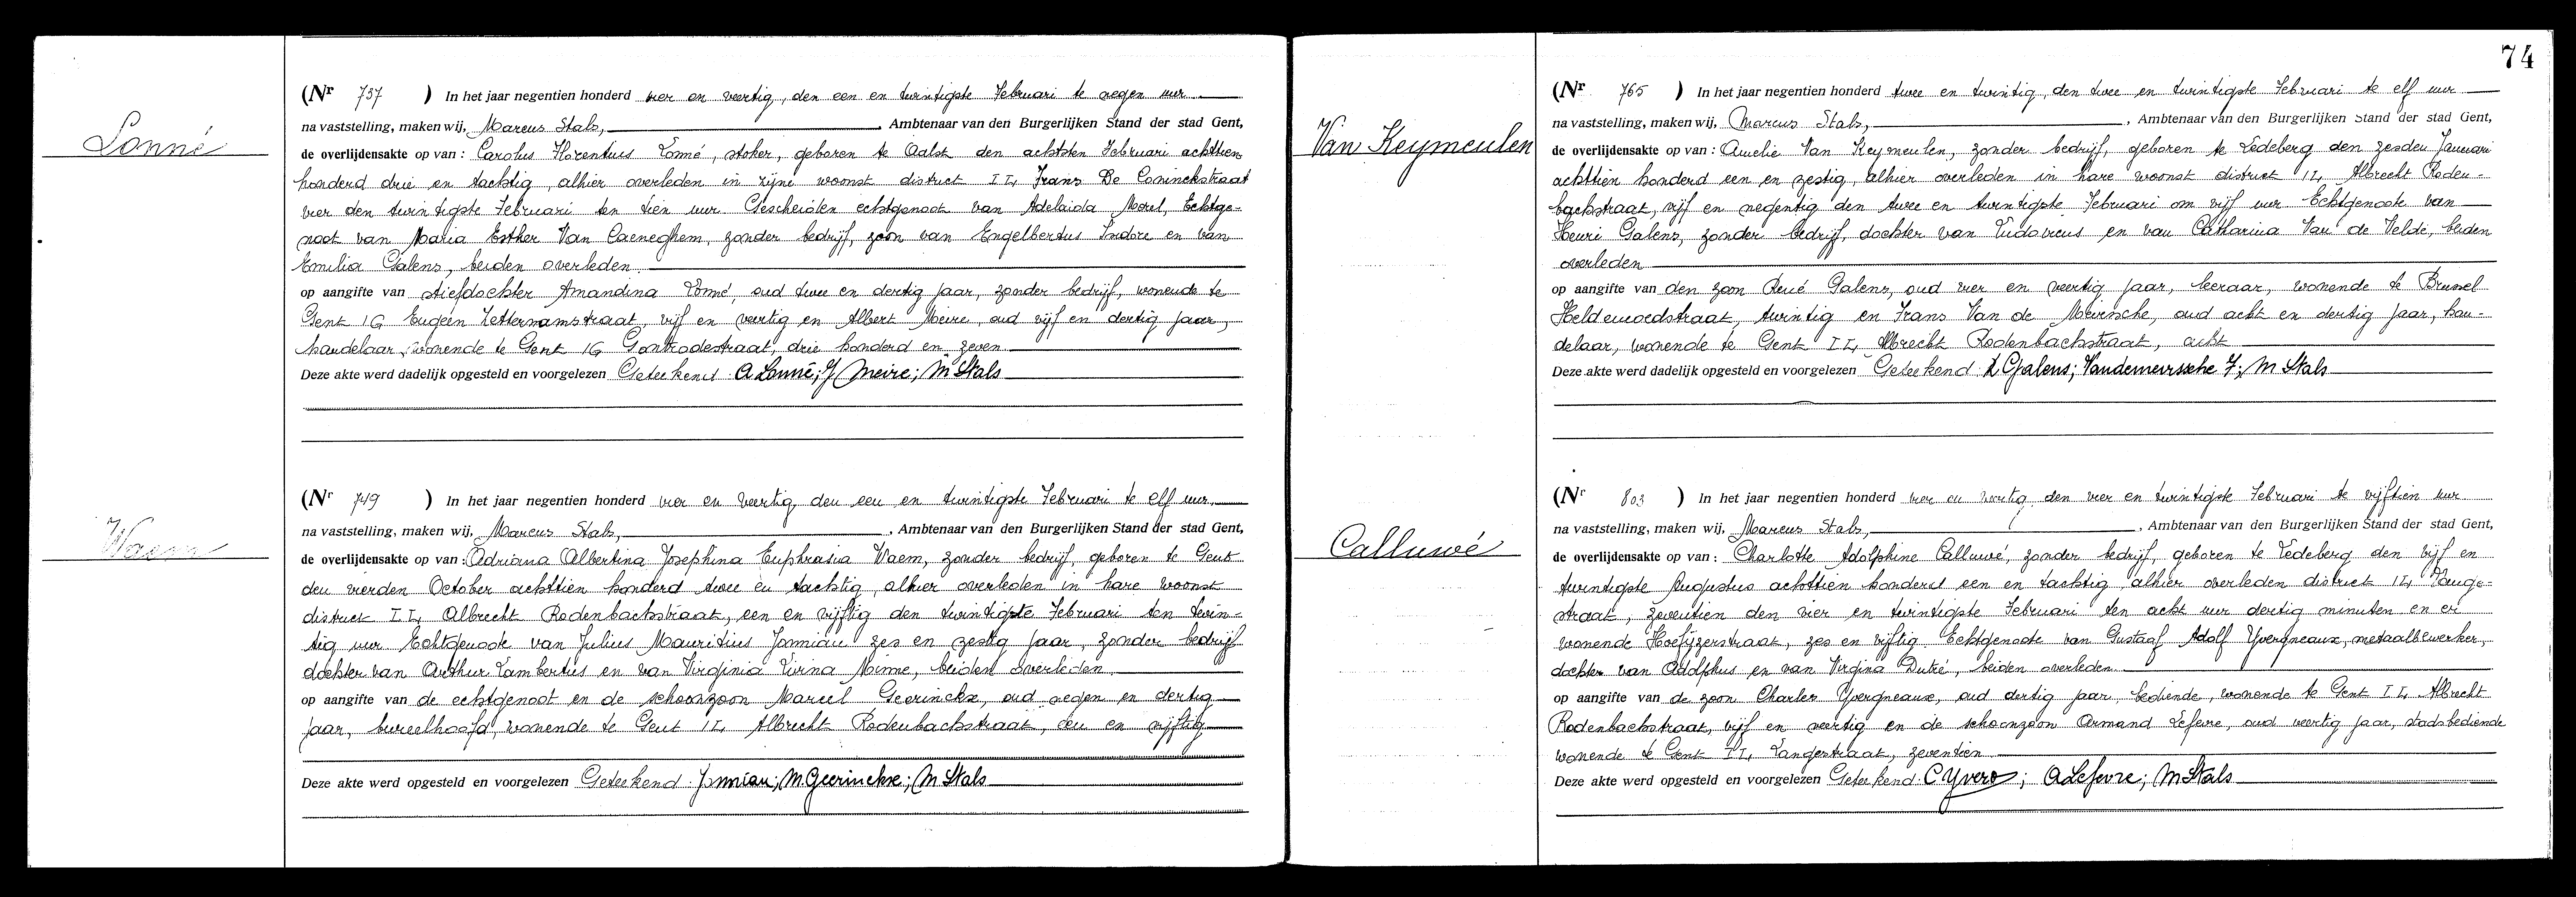 Lonné
(Nr 737 ) In het jaar negentien honderd vier en veertig, den een en twintigste Februari te negen uur
na vaststelling, maken wij, Marcus Stals, , Ambtenaar van den Burgerlijken Stand der stad Gent,
de overlijdensakte op van : Carolus Florentius Lonné, stoker, geboren te Aalst den achtsten Februari achttien
honderd drie en tachtig, alhier overleden in zijne woonst district II, Frans De Coninckstraat
vier den twintigste Februari ten tien uur. Gescheiden echtgenoot van Adelaida Morel, Echtge-
noot van Maria Esther Van Caeneghem, zonder bedrijf, zoon van Engelbertus Isidore en van
Emilia Galens, beiden overleden
op aangifte van stiefdochter Amandina Lonné, oud twee en dertig jaar, zonder bedrijf, wonende te
Gent 1G Eugeen Zetternamstraat, vijf en veertig en Albert Meire, oud vijf en dertig jaar,
handelaar, wonende te Gent 1G Gontrodestraat, drie honderd en zeven
Deze akte werd dadelijk opgesteld en voorgelezen Geteekend : A Lonné; J Meire; M Stals
Waem
(Nr 749 ) In het jaar negentien honderd vier en veertig, den een en twintigste Februari te elf uur,
na vaststelling, maken wij, Marcus Stals, , Ambtenaar van den Burgerlijken Stand der stad Gent,
de overlijdensakte op van : Adriana Albertina Josephina Euphrasia Waem, zonder bedrijf, geboren te Gent
den vierden October achttien honderd twee en tachtig, alhier overleden in hare woonst
district II, Albrecht Rodenbachstraat, een en vijftig den twintigste Februari ten twin-
tig uur Echtgenoote van Julius Mauritius Janniau zes en zestig jaar, zonder bedrijf
dochter van Arthur Lambertus en van Virginia Livina Minne, beiden overleden
op aangifte van de echtgenoot en de schoonzoon Marcel Geerinckx, oud negen en dertig
jaar, bureelhoofd, wonende te Gent II, Albrecht Rodenbachstraat, een en vijftig
Deze akte werd opgesteld en voorgelezen Geteekend : Janniau; M. Geerinckx; M Stals
74
Van Keymeulen
(Nr 765 ) In het jaar negentien honderd twee en twintig, den twee en twintigste Februari te elf uur
na vaststelling, maken wij, Marcus Stals, , Ambtenaar van den Burgerlijken Stand der stad Gent,
de overlijdensakte op van : Amelie Van Keymeulen, zonder bedrijf, geboren te Ledeberg den zesden Januari
achttien honderd een en zestig, alhier overleden in hare woonst district II, Albrecht Roden-
bachstraat, vijf en negentig den twee en twintigste Februari om vijf uur Echtgenote van
Henri Galens, zonder bedrijf, dochter van Ludovicus en van Catharina Van de Velde, beiden
overleden
op aangifte van den zoon René Galens, oud vier en veertig jaar, leeraar, wonende te Brussel
Heldenmoedstraat, twintig en Frans Van de Meirssche, oud acht en dertig jaar, han-
delaar, wonende te Gent II, Albrecht Rodenbachstraat, acht
Deze akte werd dadelijk opgesteld en voorgelezen Geteekend : R Galens; Vandemeirssche F; M Stals
Calluwé
(Nr 803 ) In het jaar negentien honderd vier en veertig, den vier en twintigste Februari te vijftien uur
na vaststelling, maken wij, Marcus Stals, , Ambtenaar van den Burgerlijken Stand der stad Gent,
de overlijdensakte op van : Charlotte Adolphine Calluwé, zonder bedrijf, geboren te Ledeberg den vijf en
twintigste Augustus achttien honderd een en tachtig, alhier overleden district II, Lange-
straat, zeventien den vier en twintigste Februari ten acht uur dertig minuten en er
wonende Hoefijzerstraat, zes en vijftig Echtgenoote van Gustaaf Adolf Yvergneaux, metaalbewerker,
dochter van Adolphus en van Virgina Dutré, beiden overleden
op aangifte van de zoon Charles Yvergneaux, oud dertig jaar, bediende, wonende te Gent II, Albrecht
Rodenbachstraat, vijf en veertig en de schoonzoon Armand Lefevre, oud veertig jaar, stadsbediende
wonende te Gent II, Langestraat, zeventien
Deze akte werd opgesteld en voorgelezen Geteekend : C Yverg; A Lefevre; M Stals